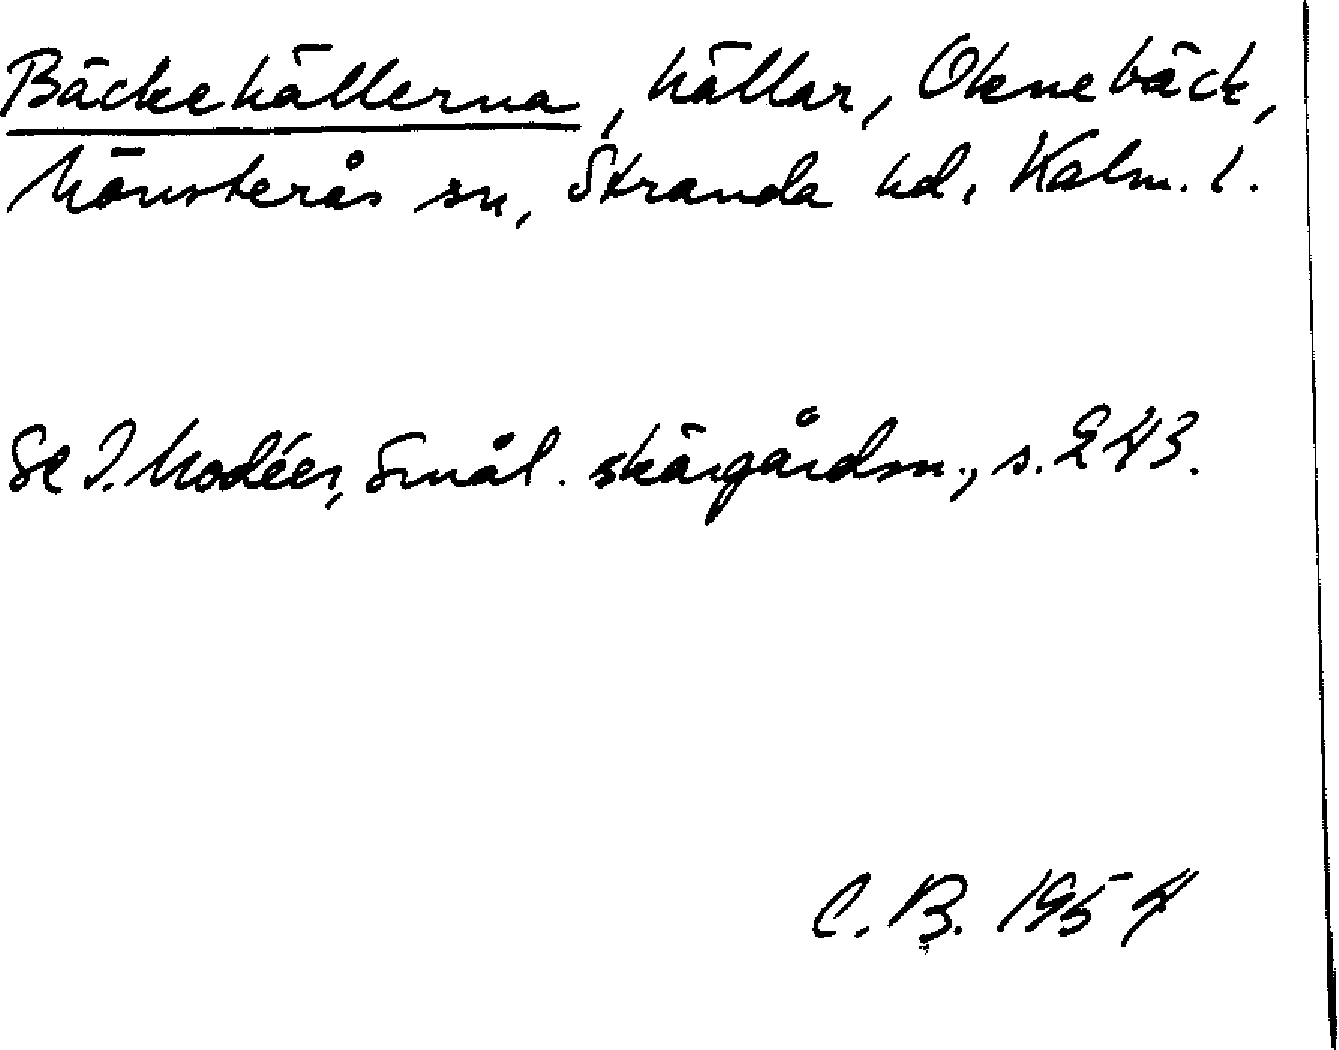 Bäckehällerna, hällar, Oknebäck,
Mönsterås sn, Stranda hd, Kalm. l.
Se I. Modéer, Smål. skärgårdsn., s. 243.
C. B. 1954